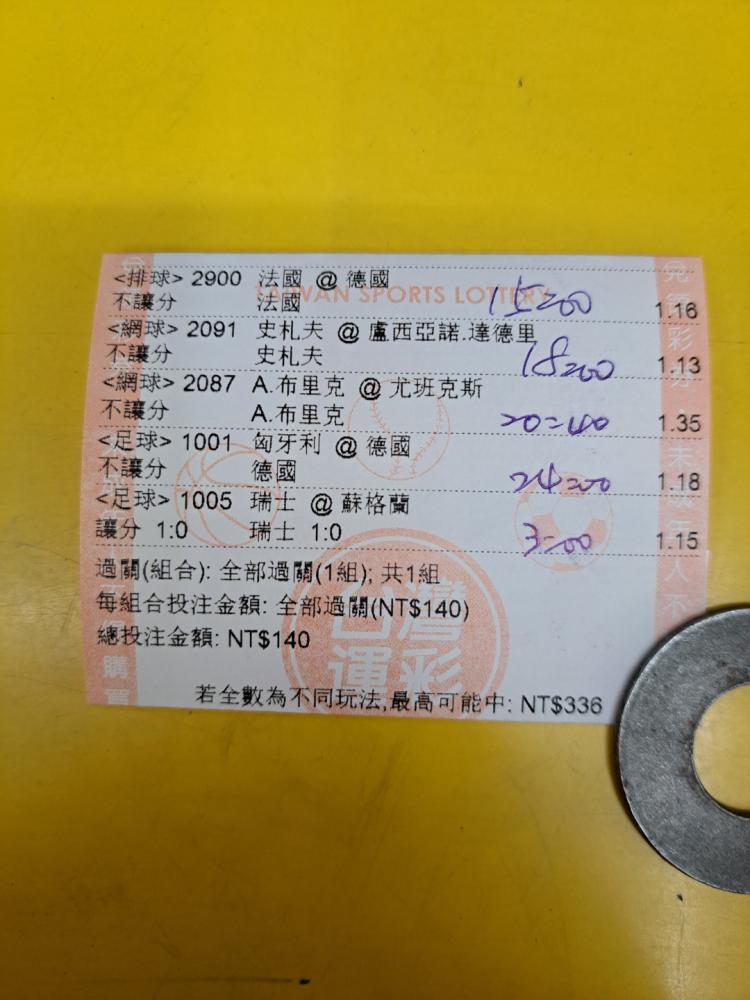 <排球> 2900 法國 @ 德國
TAIWAN SPORTS LOTTERY
不讓分 法國 15=00 1.16
<網球> 2091 史札夫 @ 盧西亞諾.達德里
不讓分 史札夫 18=00 1.13
<網球> 2087 A.布里克 @ 尤班克斯
不讓分 A.布里克 20=40 1.35
<足球> 1001 匈牙利 @ 德國
不讓分 德國 24=00 1.18
<足球> 1005 瑞士 @ 蘇格蘭
讓分 1:0 瑞士 1:0 3=00 1.15
過關(組合): 全部過關(1組); 共1組
每組合投注金額: 全部過關(NT$140)
總投注金額: NT$140
台灣
運彩
若全數為不同玩法,最高可能中: NT$336